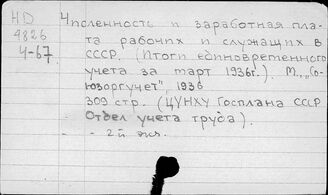 HD Численность и заработная пла-
4826 та рабочих и служащих в
4-67 СССР. (Итоги единовременного
учета за март 1936г.). М., "Со-
юзоргучет", 1936
309 стр. (ЦУНХУ Госплана СССР
Отдел учета труда).
- 2й экз.